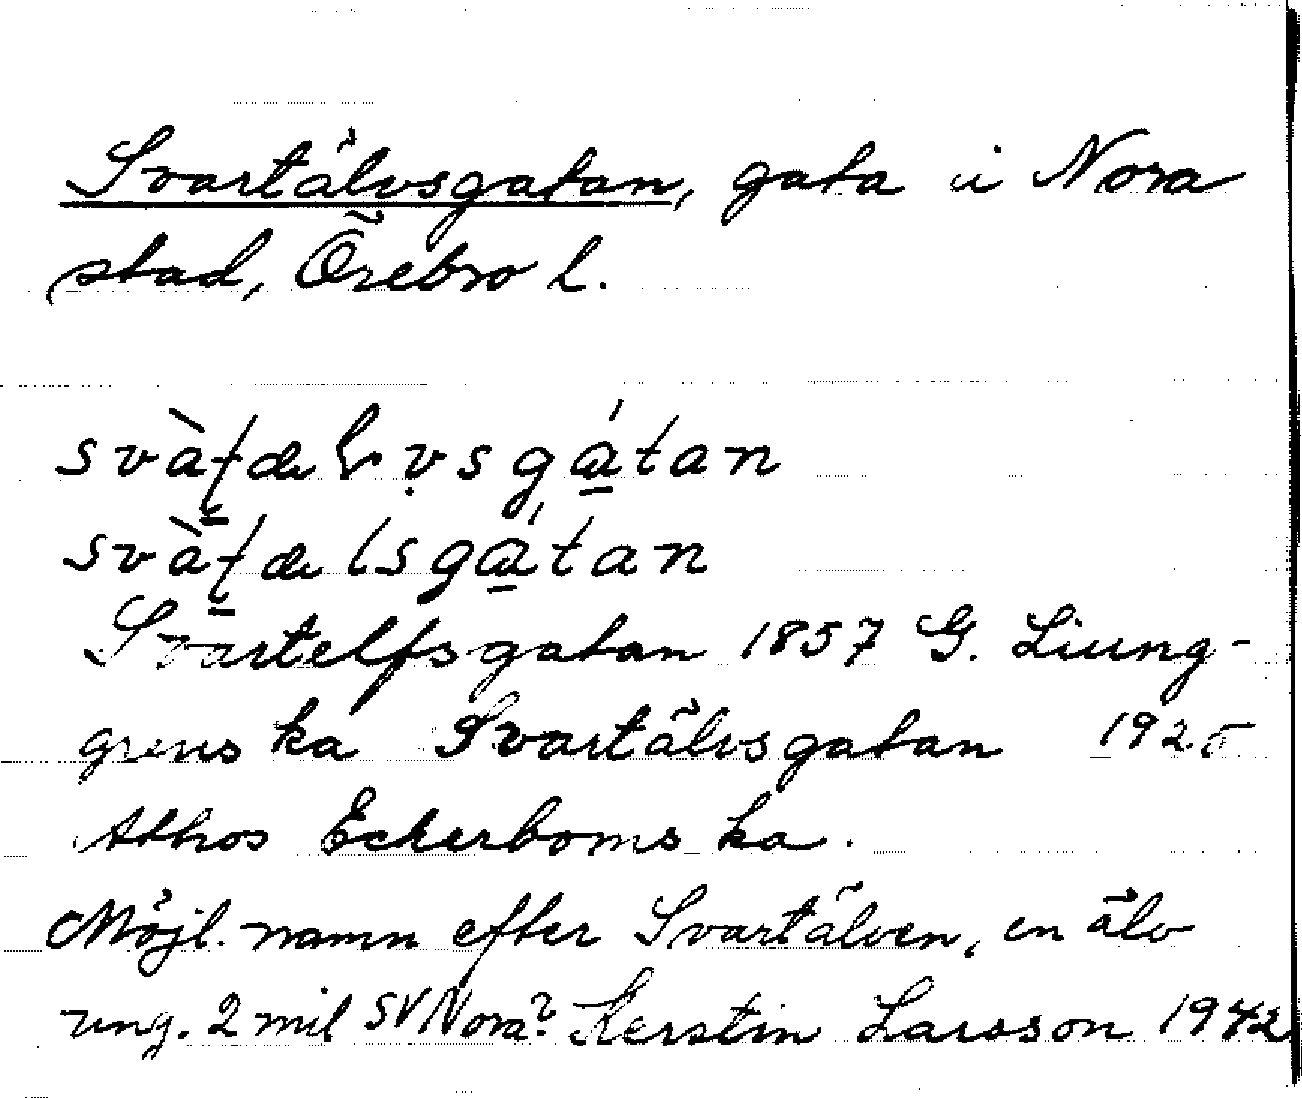 Svartälvsgatan, gata i Nora
stad, Örebro l.
Svartelfsgatan 1857 G. Liung-
grens ka Svartälvsgatan 1925
Athos Eckerboms ka.
Möjl. namn efter Svartälven, en älv
ung. 2 mil SV Nora? Kerstin Larsson 1942